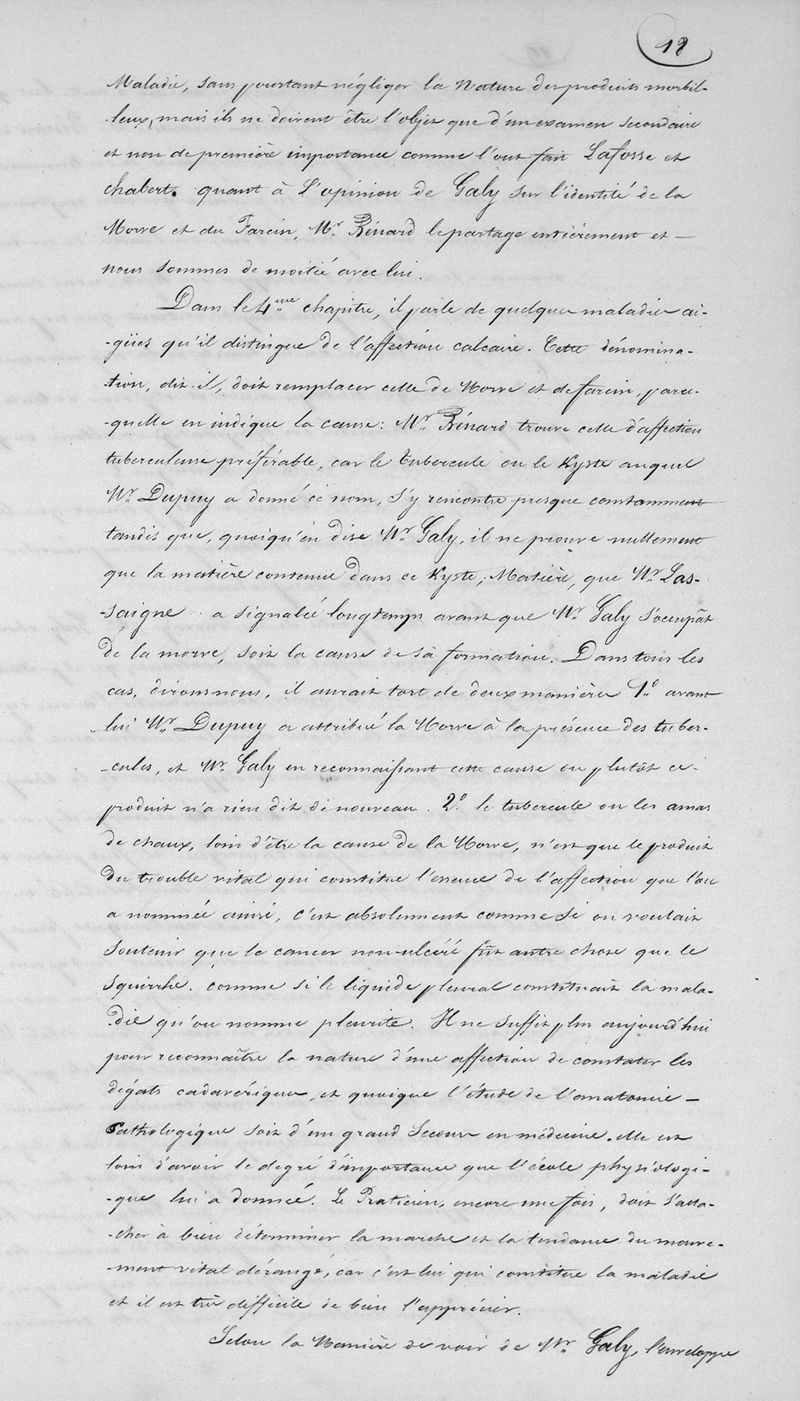 18
Maladie, sans pourtant négliger la Nature des produits morbil-
leux, mais ils ne doivent être l'objet que d'un examen secondaire
et non de première importance comme l'ont fait Lafosse et
chabert. quant à L'opinion de Galy sur l'identité de la
Morve et du Farcin, Mr. Rénard le partage entièrement et —
nous sommes de moitié avec lui.
Dans le 4eme chapitre, il parle de quelques maladies ai-
-gües qu'il distingue de l'affection calcaire. Cette dénomina-
-tion, dit-il, doit remplacer celle de Morve et de farcin, parce-
-quelle en indique la cause: Mr. Rénard trouve celle d'affection
tuberculeuse préférable, car le tubercule ou le Kyste auquel
Mr. Dupuy a donné ce nom, s'y rencontre presque constamment
tandis que, quoiqu'en dise Mr. Galy, il ne prouve nullement
que la matière contenue dans ce Kyste, Matière, que Mr. Las-
-saigne a signalée longtemps avant que Mr. Galy s'occupât
de la morve, soit la cause de sa formation. Dans tous les
cas, dirons nous, il aurait tort de deux manières 1o. avant
lui Mr. Dupuy a attribué la Morve à la présence des tuber-
-cules, et Mr. Galy en reconnaissant cette cause ou plutôt ce
produit n'a rien dit de nouveau. 2o. le tubercule ou les amas
de chaux, loin d'être la cause de la Morve, n'est que le produit
du trouble vital qui constitue l'essence de l'affection que l'on
a nommée ainsi, c'est absolument comme si on voulait
soutenir que le cancer non-ulcéré fût autre chose que le
squirrhe. comme si le liquide pleural constituait la mala-
-die qu'on nomme pleurite. Il ne suffit plus aujourd'hui
pour reconnaître la nature d'une affection de constater les
dégats cadavériques, et quoique l'étude de l'anatomie —
Pathologique soit d'un grand secours en médecine, elle est
loin d'avoir le degré d'importance que l'école physiologi-
-que lui a donnée. Le Praticien, encore une fois, doit s'atta-
-cher à bien déterminer la marche et la tendance du mouve-
-ment vital dérangé, car c'est lui qui constitue la maladie
et il est très difficile de bien l'apprécier.
Selon la Manière de voir de Mr. Galy, l'enveloppe